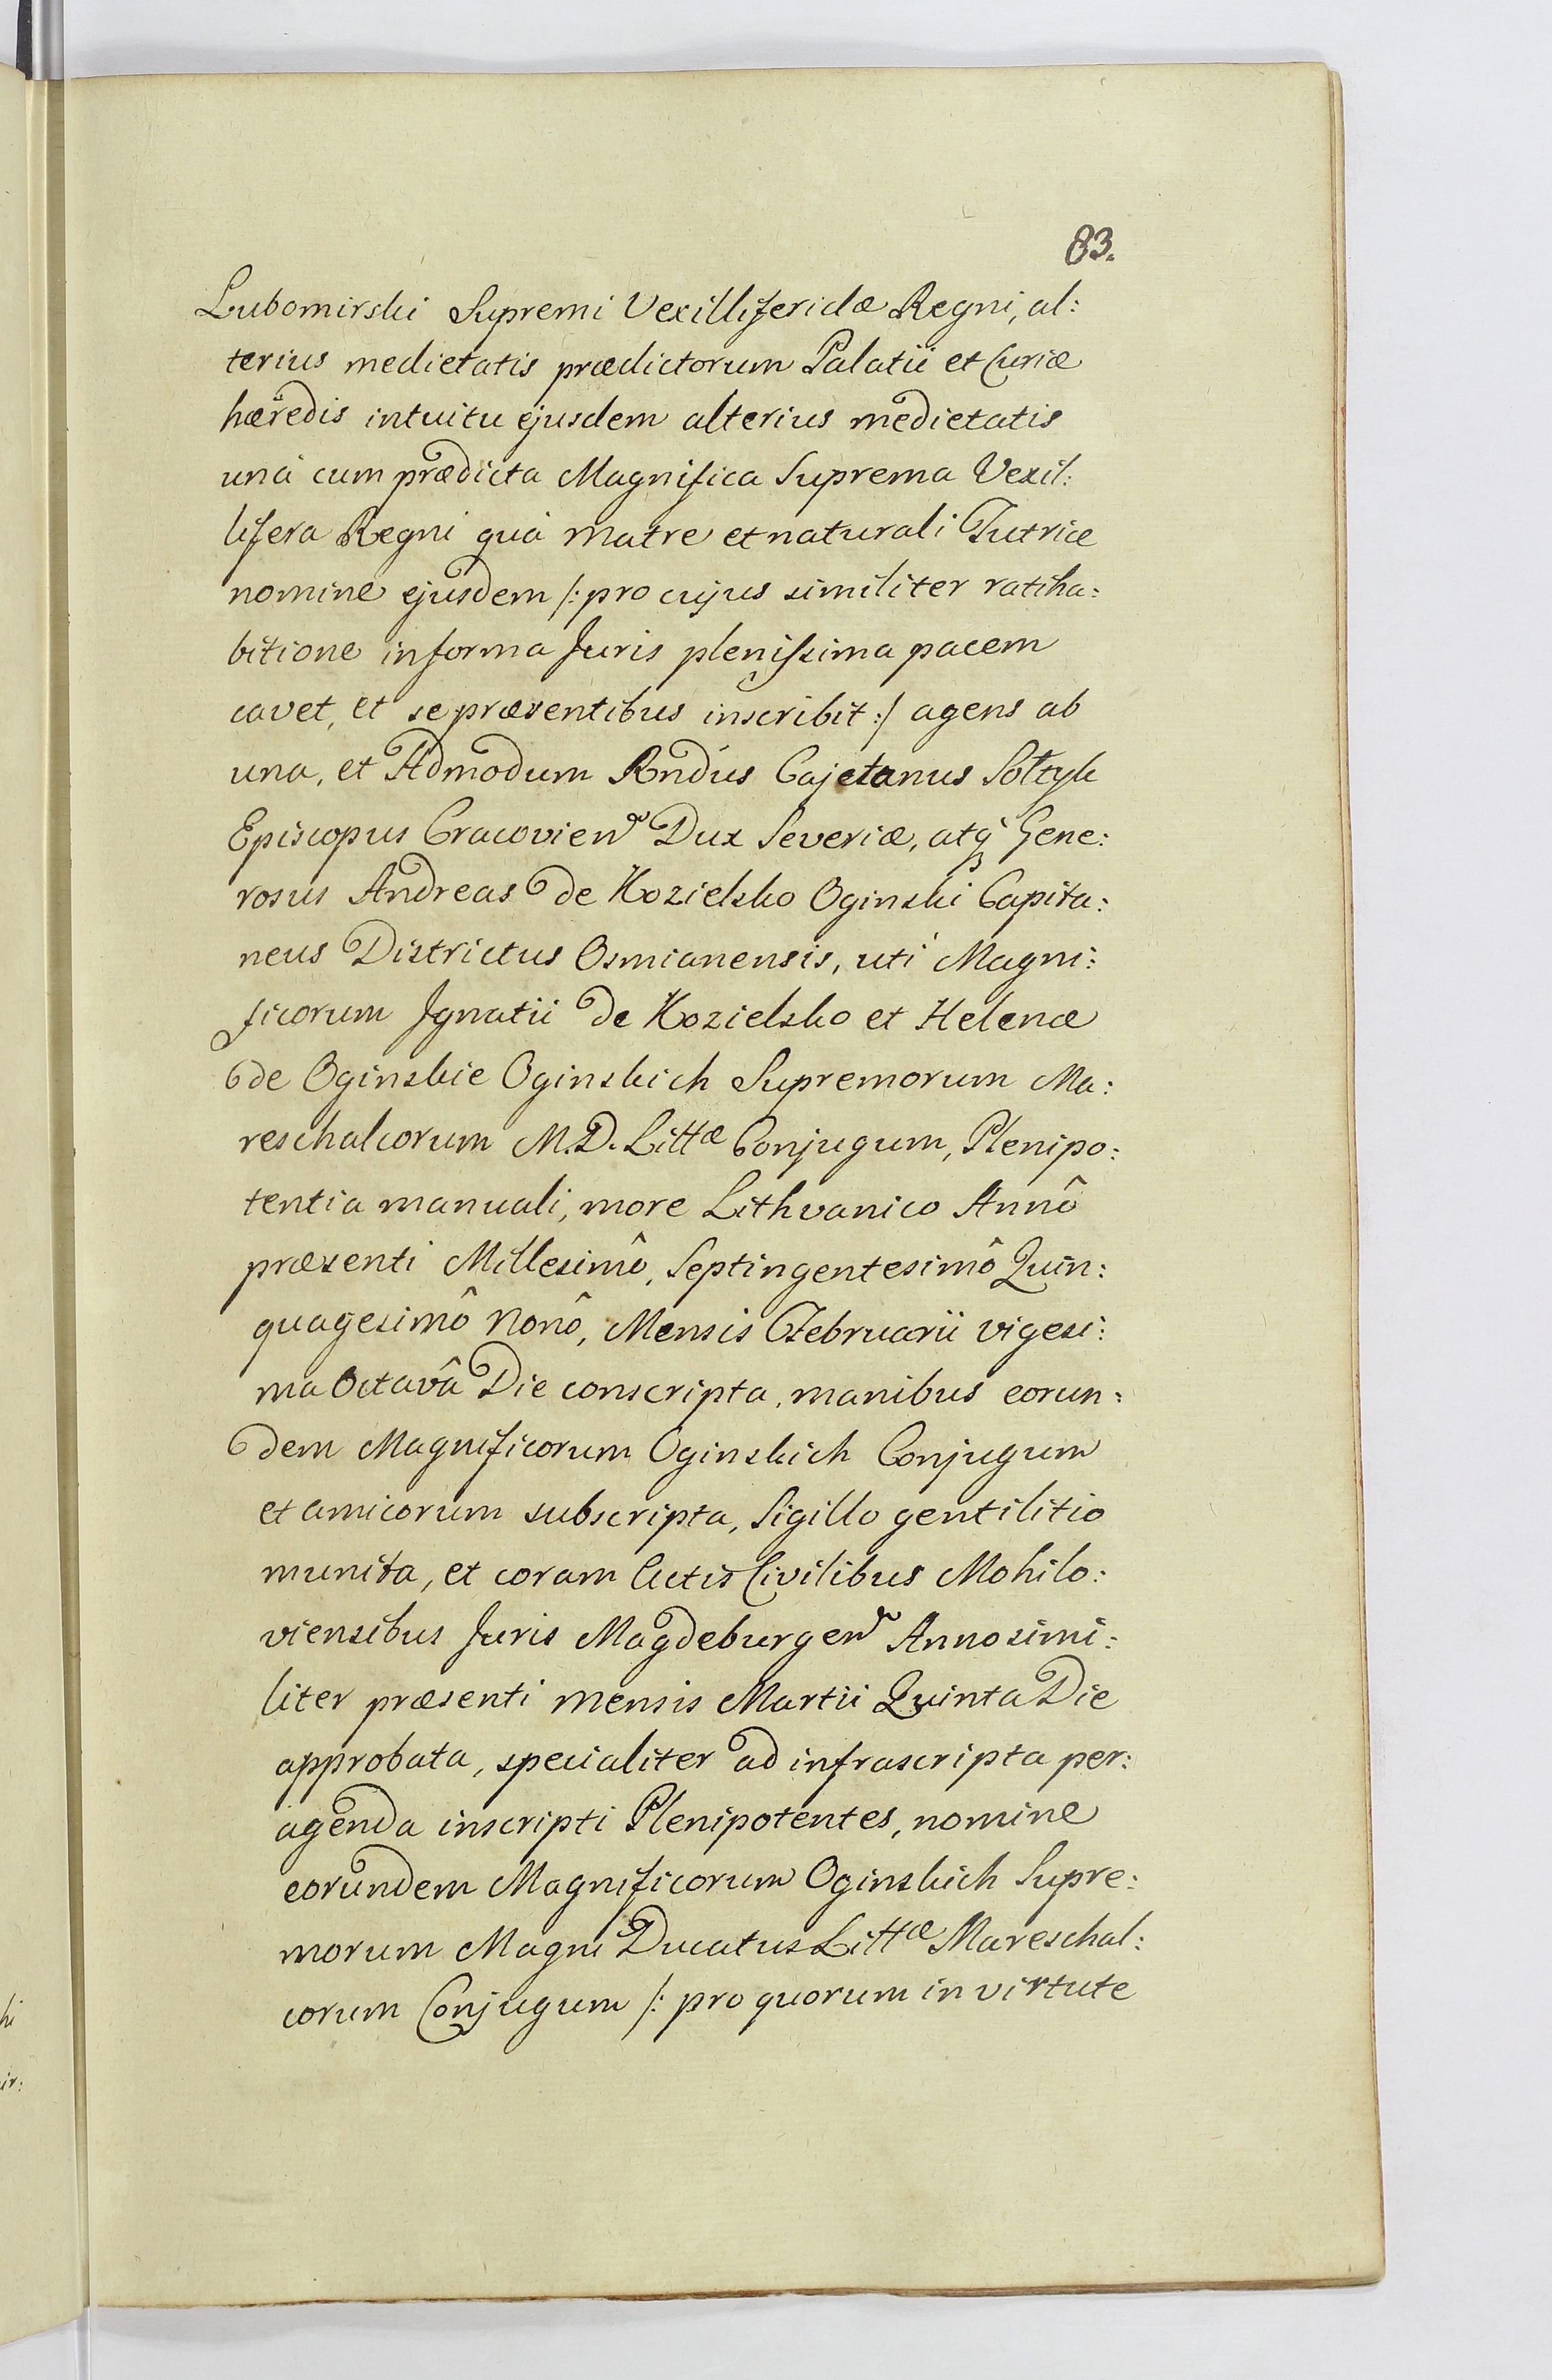 83.
Lubomirski Supremi Vexilliferidæ Regni, al:
terius medietatis prædictorum Palatii et Curiæ
hæredis intuitu ejusdem alterius medietatis
unà cum prædicta Magnifica Suprema Vexil:
lifera Regni quà Matre et naturali Tutrice
nomine ejusdem /: pro cujus similiter ratiha:
bitione in forma Juris plenissima pacem
cavet, et se præsentibus inscribit :/ agens ab
una, et Admodum Rndus Cajetanus Sołtyk
Episcopus Cracovien Dux Severiæ, atq Gene:
rosus Andreas de Kozielsko Oginski Capita:
neus Districtus Osmianensis, uti Magni:
ficorum Ignatii de Kozielsko et Helenæ
de Oginskie Oginskich Supremorum Ma:
reschalcorum M.D. Littæ Conjugum, Plenipo:
tentia manuali, more Lithvanico Annô
præsenti Millesimô, Septingentesimô Quin:
quagesimô Nonô, Mensis Februarii vigesi:
ma Octavâ Die conscripta, manibus eorun:
dem Magnificorum Oginskich Conjugum
et amicorum subscripta, Sigillo gentilitio
munita, et coram Actis Civilibus Mohilo:
viensibus Juris Magdeburgen Anno simi:
liter præsenti mensis Martii Quinta Die
approbata, specialiter ad infrascripta per:
agenda inscripti Plenipotentes, nomine
eorundem Magnificorum Oginskich Supre:
morum Magni Ducatus Littæ Mareschal:
corum Conjugum /: pro quorum in virtute
hi
ir: